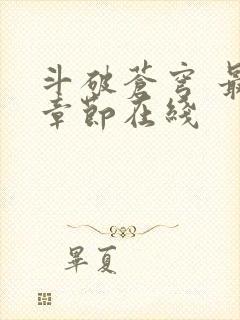 斗破蒼穹 最
章節在綫
畢夏